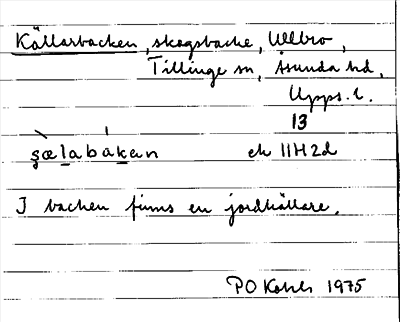 Källarbacken, skogsbacke, Ullbro,
Tillinge sn, Åsunda hd,
Upps. l.
13
ek 11H2d
I backen finns en jordkällare.
PO 1975